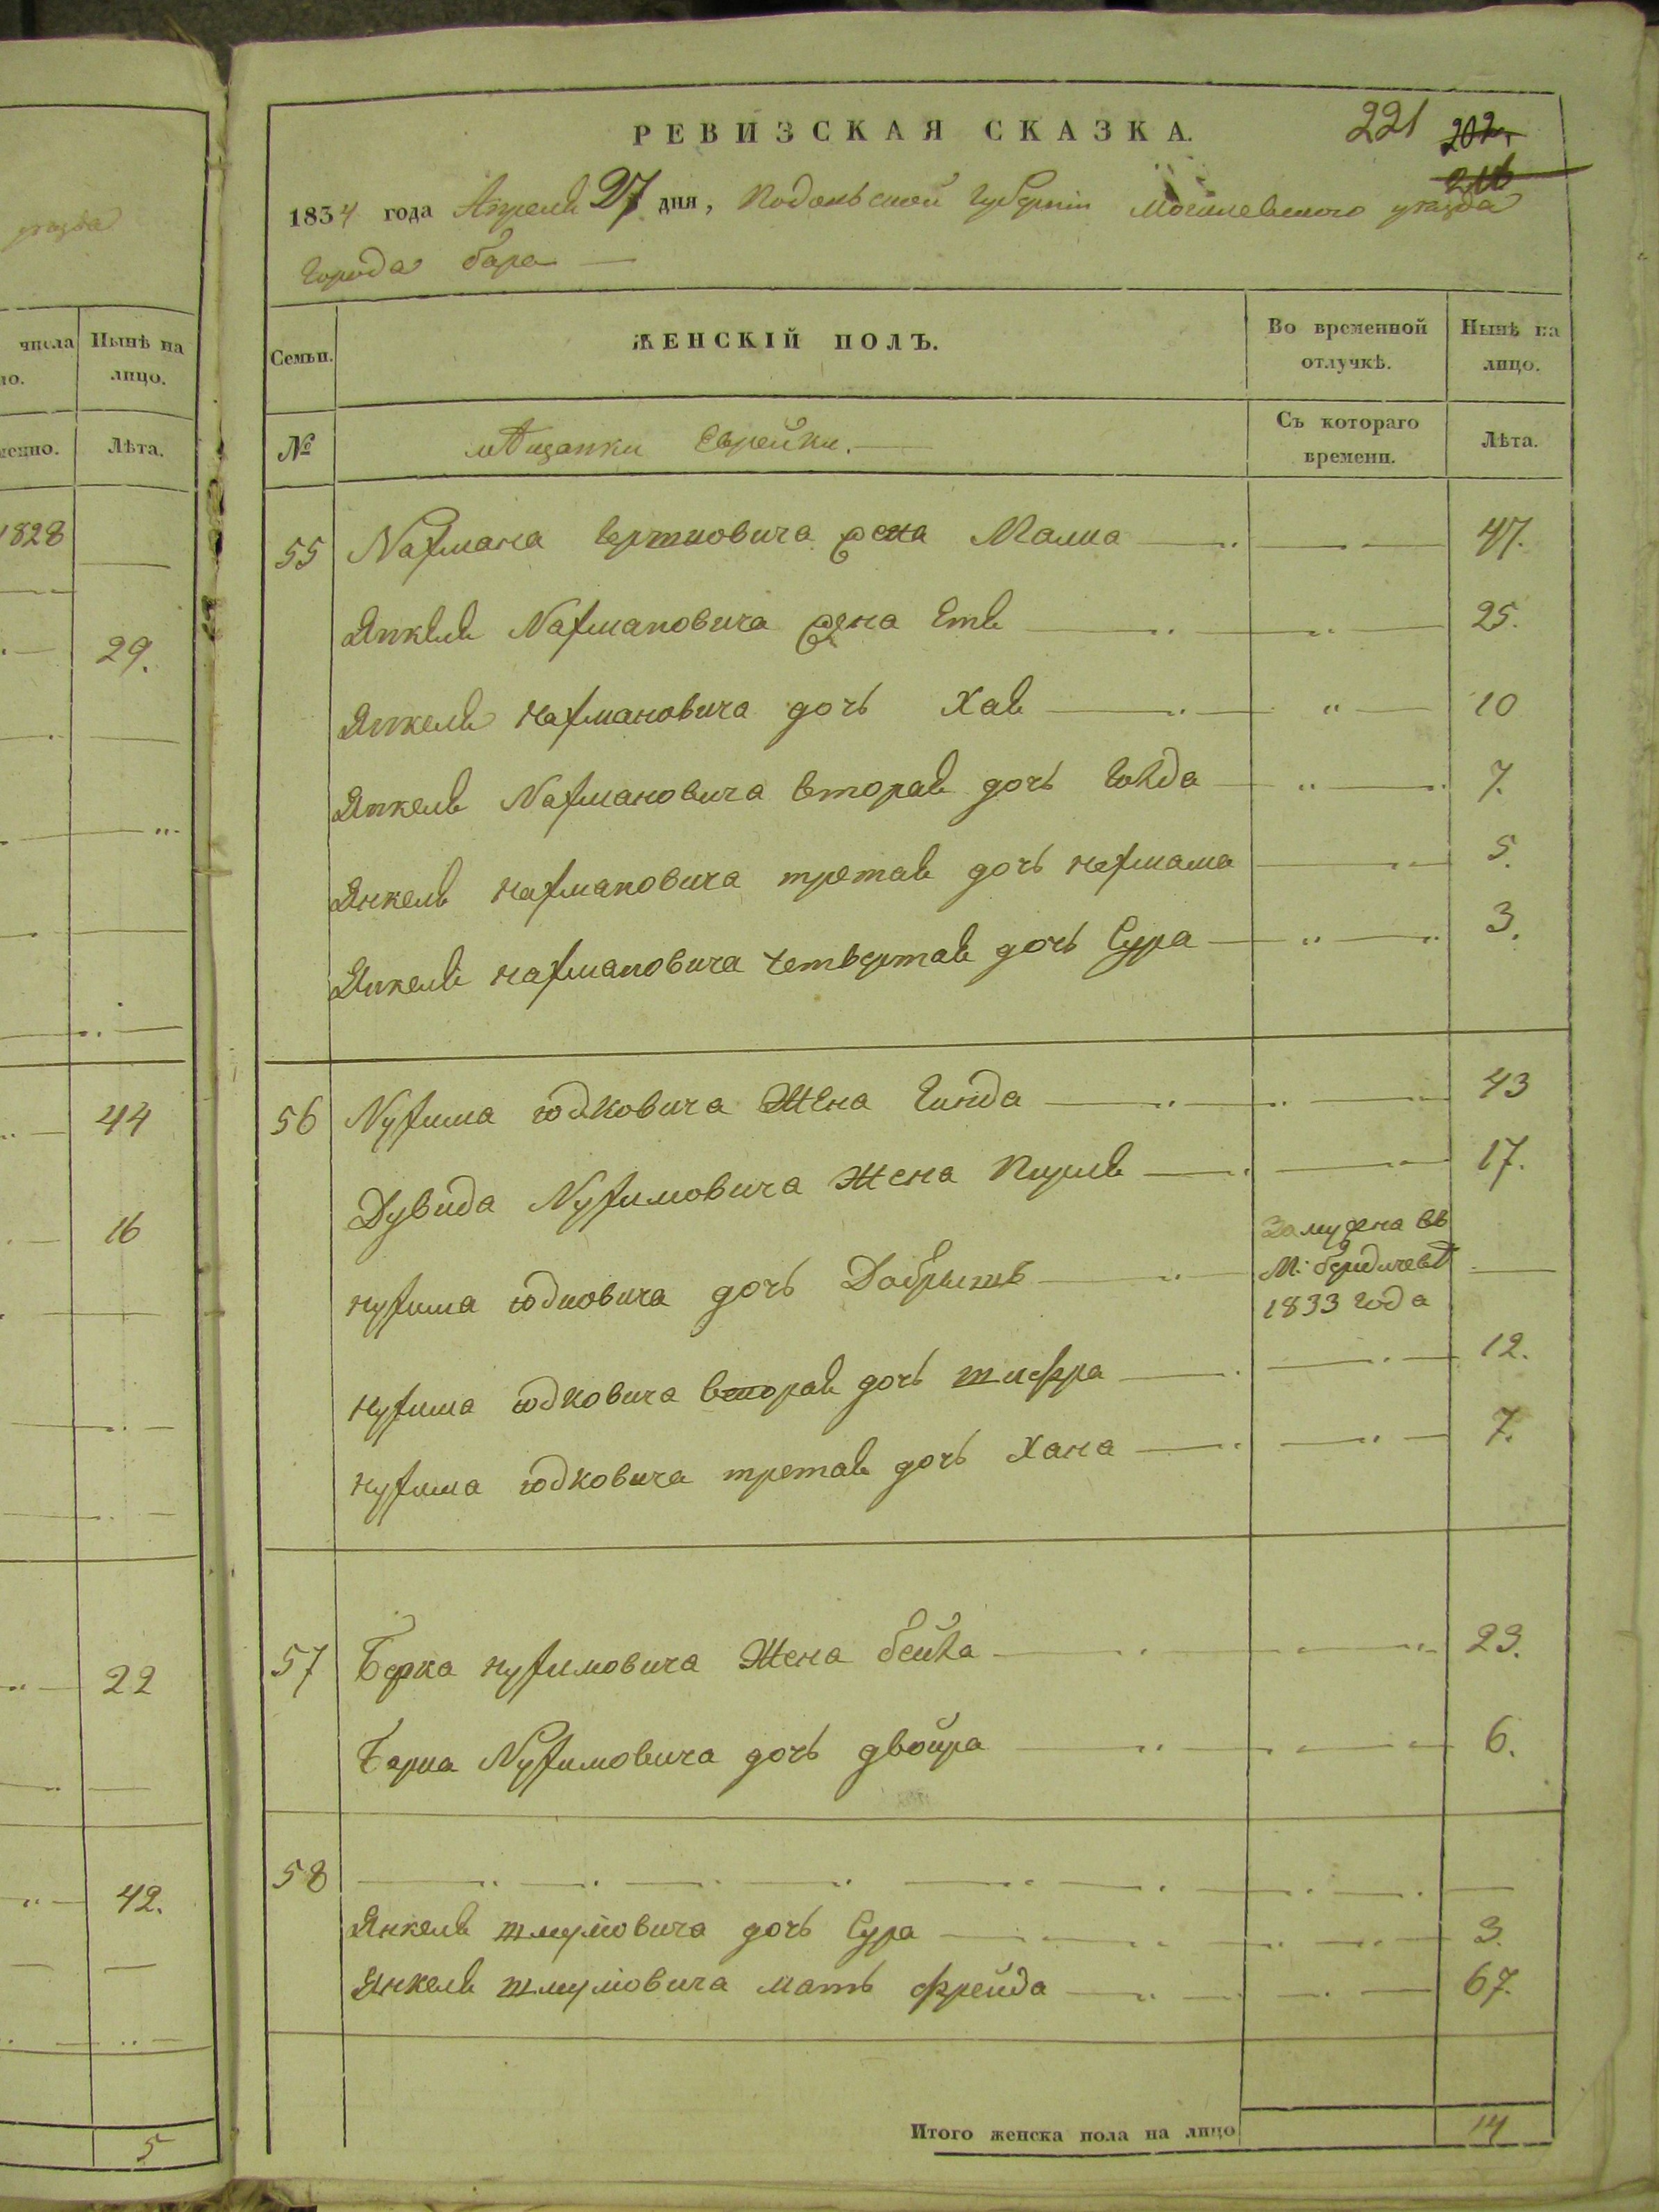 уезда
числа Нынѣ на
но. лицо.
менно. Лѣта.
1828
29.
44
16
22
42.
5
РЕВИЗСКАЯ СКАЗКА. 221 202
216
1834 года Апреля 27 дня, Подольской Губерніи Могилевского уезда
города бара
Семьи. ЖЕНСКІЙ ПОЛЪ. Во временной отлучкѣ. Нынѣ на лицо.
№ мѢщанки Еврейки. Съ котораго времени. Лѣта.
55 Нахмана Гершковича жена Малца 47.
Янкеля Нахмановича жена Етя 25.
Янкеля нахмановича дочь Хая 10
Янкеля Нахмановича вторая дочь Голда 7.
Янкеля нахмановича третая дочь 5.
Янкеля нахмановича четвертая дочь Сура 3.
56 Нухима юдковича Жена Гинда 43
Дувида Нухимовича Жена Пирля 17.
нухима юдковича дочь Добрышь Замужена въ
М: бердичевѢ
1833 года
нухима юдковича вторая дочь шифра 12.
нухима юдковича третая дочь Хана 7.
57 Берка нухимовича Жена бейла 23.
Берка Нухимовича дочь двойра 6.
58
Янкеля шмуловича дочь Сура 3.
Янкеля шмуловича мать фрейда 67.
Итого женска пола на лицо 14